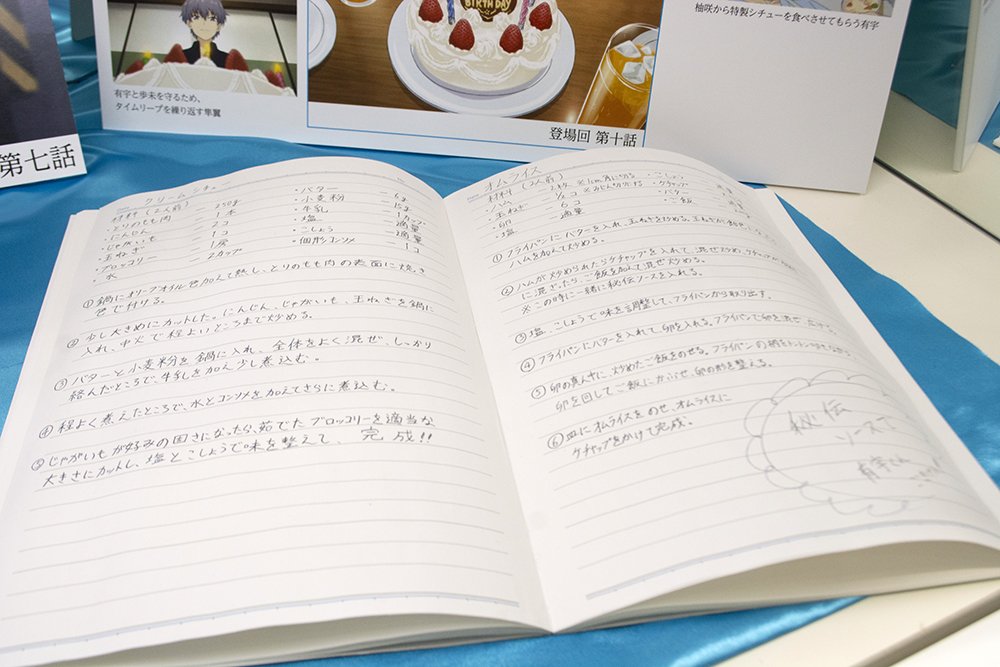 柚咲から特製シチューを食べさせてもらう有宇
BIRTHDAY
有宇と歩未を守るため、
タイムリープを繰り返す隼翼
登場回 第十話
第七話
クリームシチュー
材料(2人前)
・とりのもも肉 ー 250g
・にんじん ー 1本
・じゃがいも ー 2コ
・玉ねぎ ー 1コ
・ブロッコリー ー 1房
・水 ー 2カップ
・バター
・小麦粉
・牛乳 ー 1カップ
・塩 ー 適量
・こしょう ー 適量
・固形コンソメ ー 1コ
①鍋にオリーブオイルを加えて熱し、とりのもも肉の表面に焼き
色を付ける。
②少し大きめにカットした。にんじん、じゃがいも、玉ねぎを鍋に
入れ、中火で程よいところまで炒める。
③バターと小麦粉を鍋に入れ、全体をよく混ぜ、しっかり
絡んだところで、牛乳を加え少し煮込む。
④程よく煮えたところで、水とコンソメを加えてさらに煮込む。
⑤じゃがいもが好みの固さになったら、茹でたブロッコリーを適当な
大きさにカットし、塩とこしょうで味を整えて、完成!!
オムライス
材料(2人前)
・ハム ー 2枚 ※1cm角に切る
・玉ねぎ ー ※みじん切りにする
・卵
・塩 ー 適量
・こしょう
・ケチャップ
・バター
・ご飯
①フライパンにバターを入れ、玉ねぎを炒める。玉ねぎが
ハムを加えて炒める。
②ハムが炒められたらケチャップを入れて、混ぜ炒め、ケチャップが
に混ざったら、ご飯を加えて混ぜ炒める。
※この時に一緒に秘伝ソースを入れる。
③塩、こしょうで味を調整して、フライパンから取り出す。
④フライパンにバターを入れて、卵を入れる。フライパンで卵を混ぜ
⑤卵の真ん中に、炒めたご飯をのせる。フライパンの柄をトントン
卵を回してご飯にかぶせ、卵の形を整える。
⑥皿にオムライスをのせ、オムライスに
ケチャップをかけて完成。
秘伝
ソースで
有宇くん